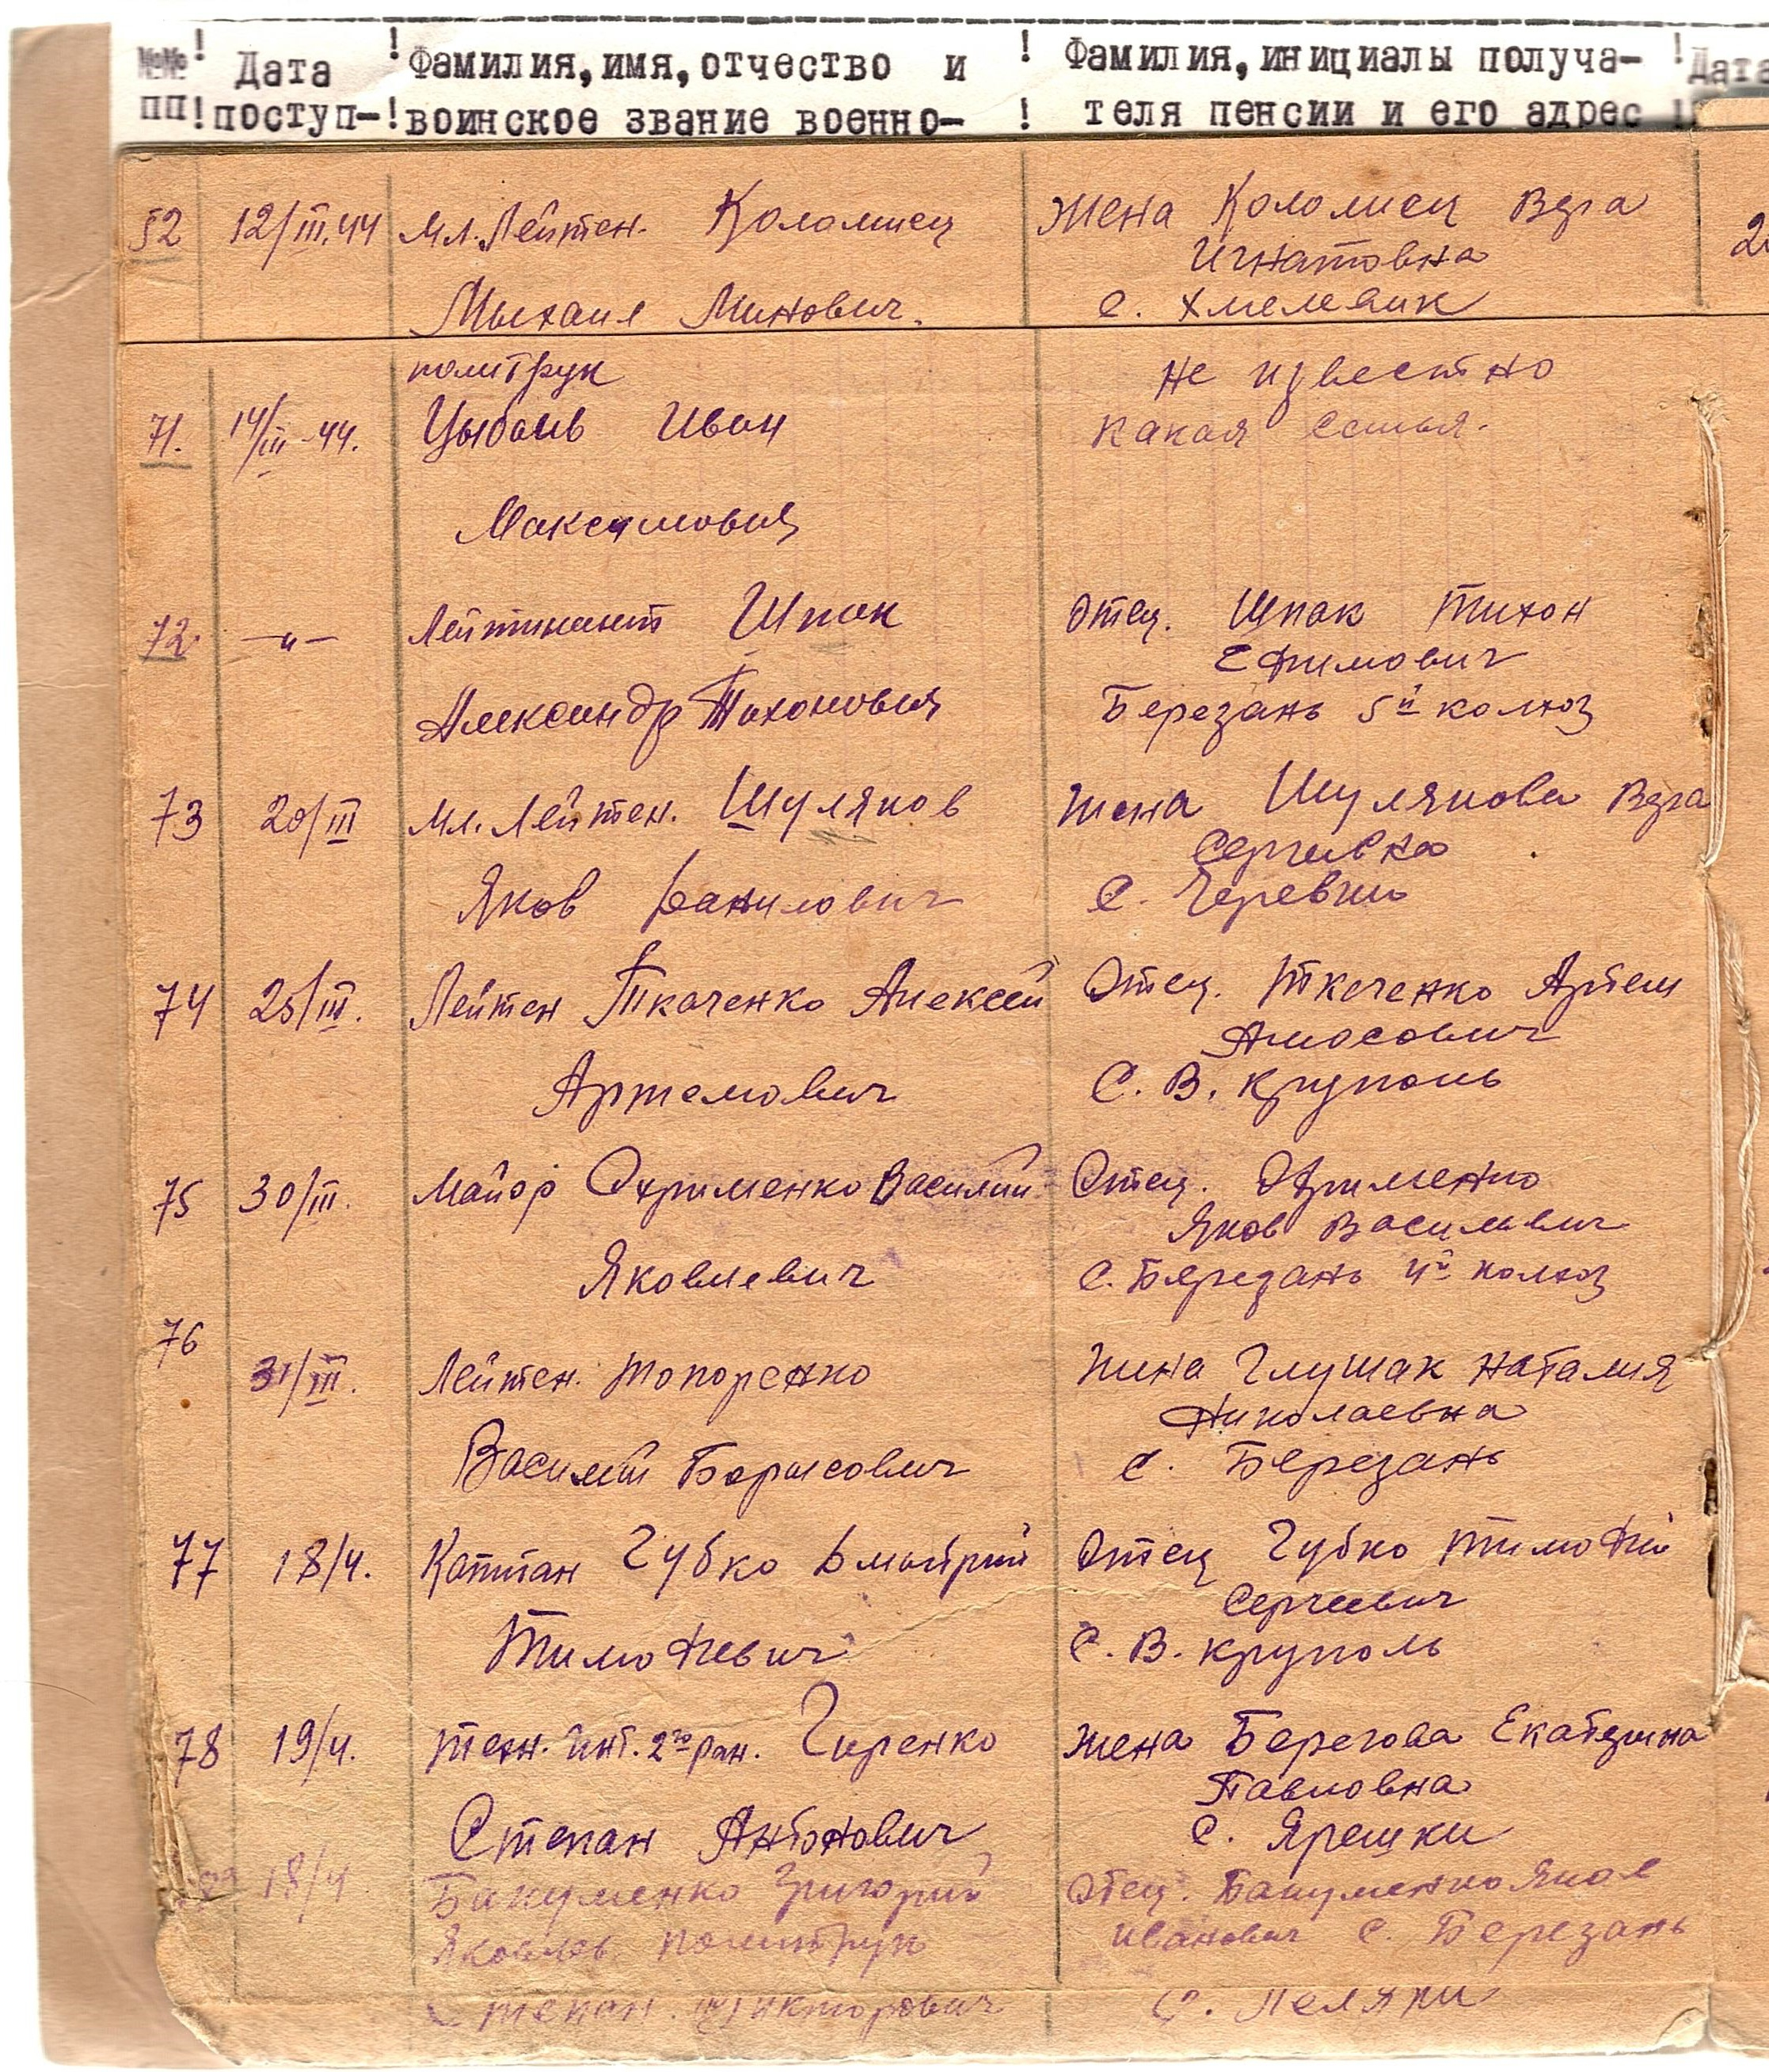 №№! Дата ! Фамилия, имя, отчество и ! Фамилия, инициалы получа- ! Дата
ПП! поступ- ! воинское звание военно- ! теля пенсии и его адрес !
52 12/III.44 Мл. Лейтен. Коломиец Жена Коломиец Вера
Игнатовна
Михаил Минович. С. Хмелевик
политрук Не известно
71. 14/III-44. Цыбань Иван какая семья.
Максимович
72. —"— Лейтинант Шпак Отец. Шпак Тихон
Ефимович
Александр Тихонович Березань 5й колхоз
73 20/III Мл. Лейтен. Шуляков Жена Шулякова Вера
Сергивна
Яков Данилович С. Черевки
74 25/III. Лейтен Ткаченко Алексей Отец. Ткаченко Артем
Амосович
Артемович С. В. Круполь
75 30/III. Майор Охрименко Василий Отец. Охрименко
Яков Васильвич
Яковлевич С. Березань 4й колхоз
76
31/III. Лейтен. Топоренко Жина Глушак Наталия
Николаевна
Василий Борисович С. Березань
77 18/4. Капитан Губко Дмитрий Отец Губко Тимофий
Сергеевич
Тимофиевич С. В. Круполь
78 19/4. техн. инт. 2го ран. Гиренко Жена Берегова Екатерина
Павловна
Степан Антонович С. Ярешки
79 18/4 Бакуменко Григорий Отец. Бакуменко Яков
Яковлев политрук Иванович С. Березань
Степан Викторович С.